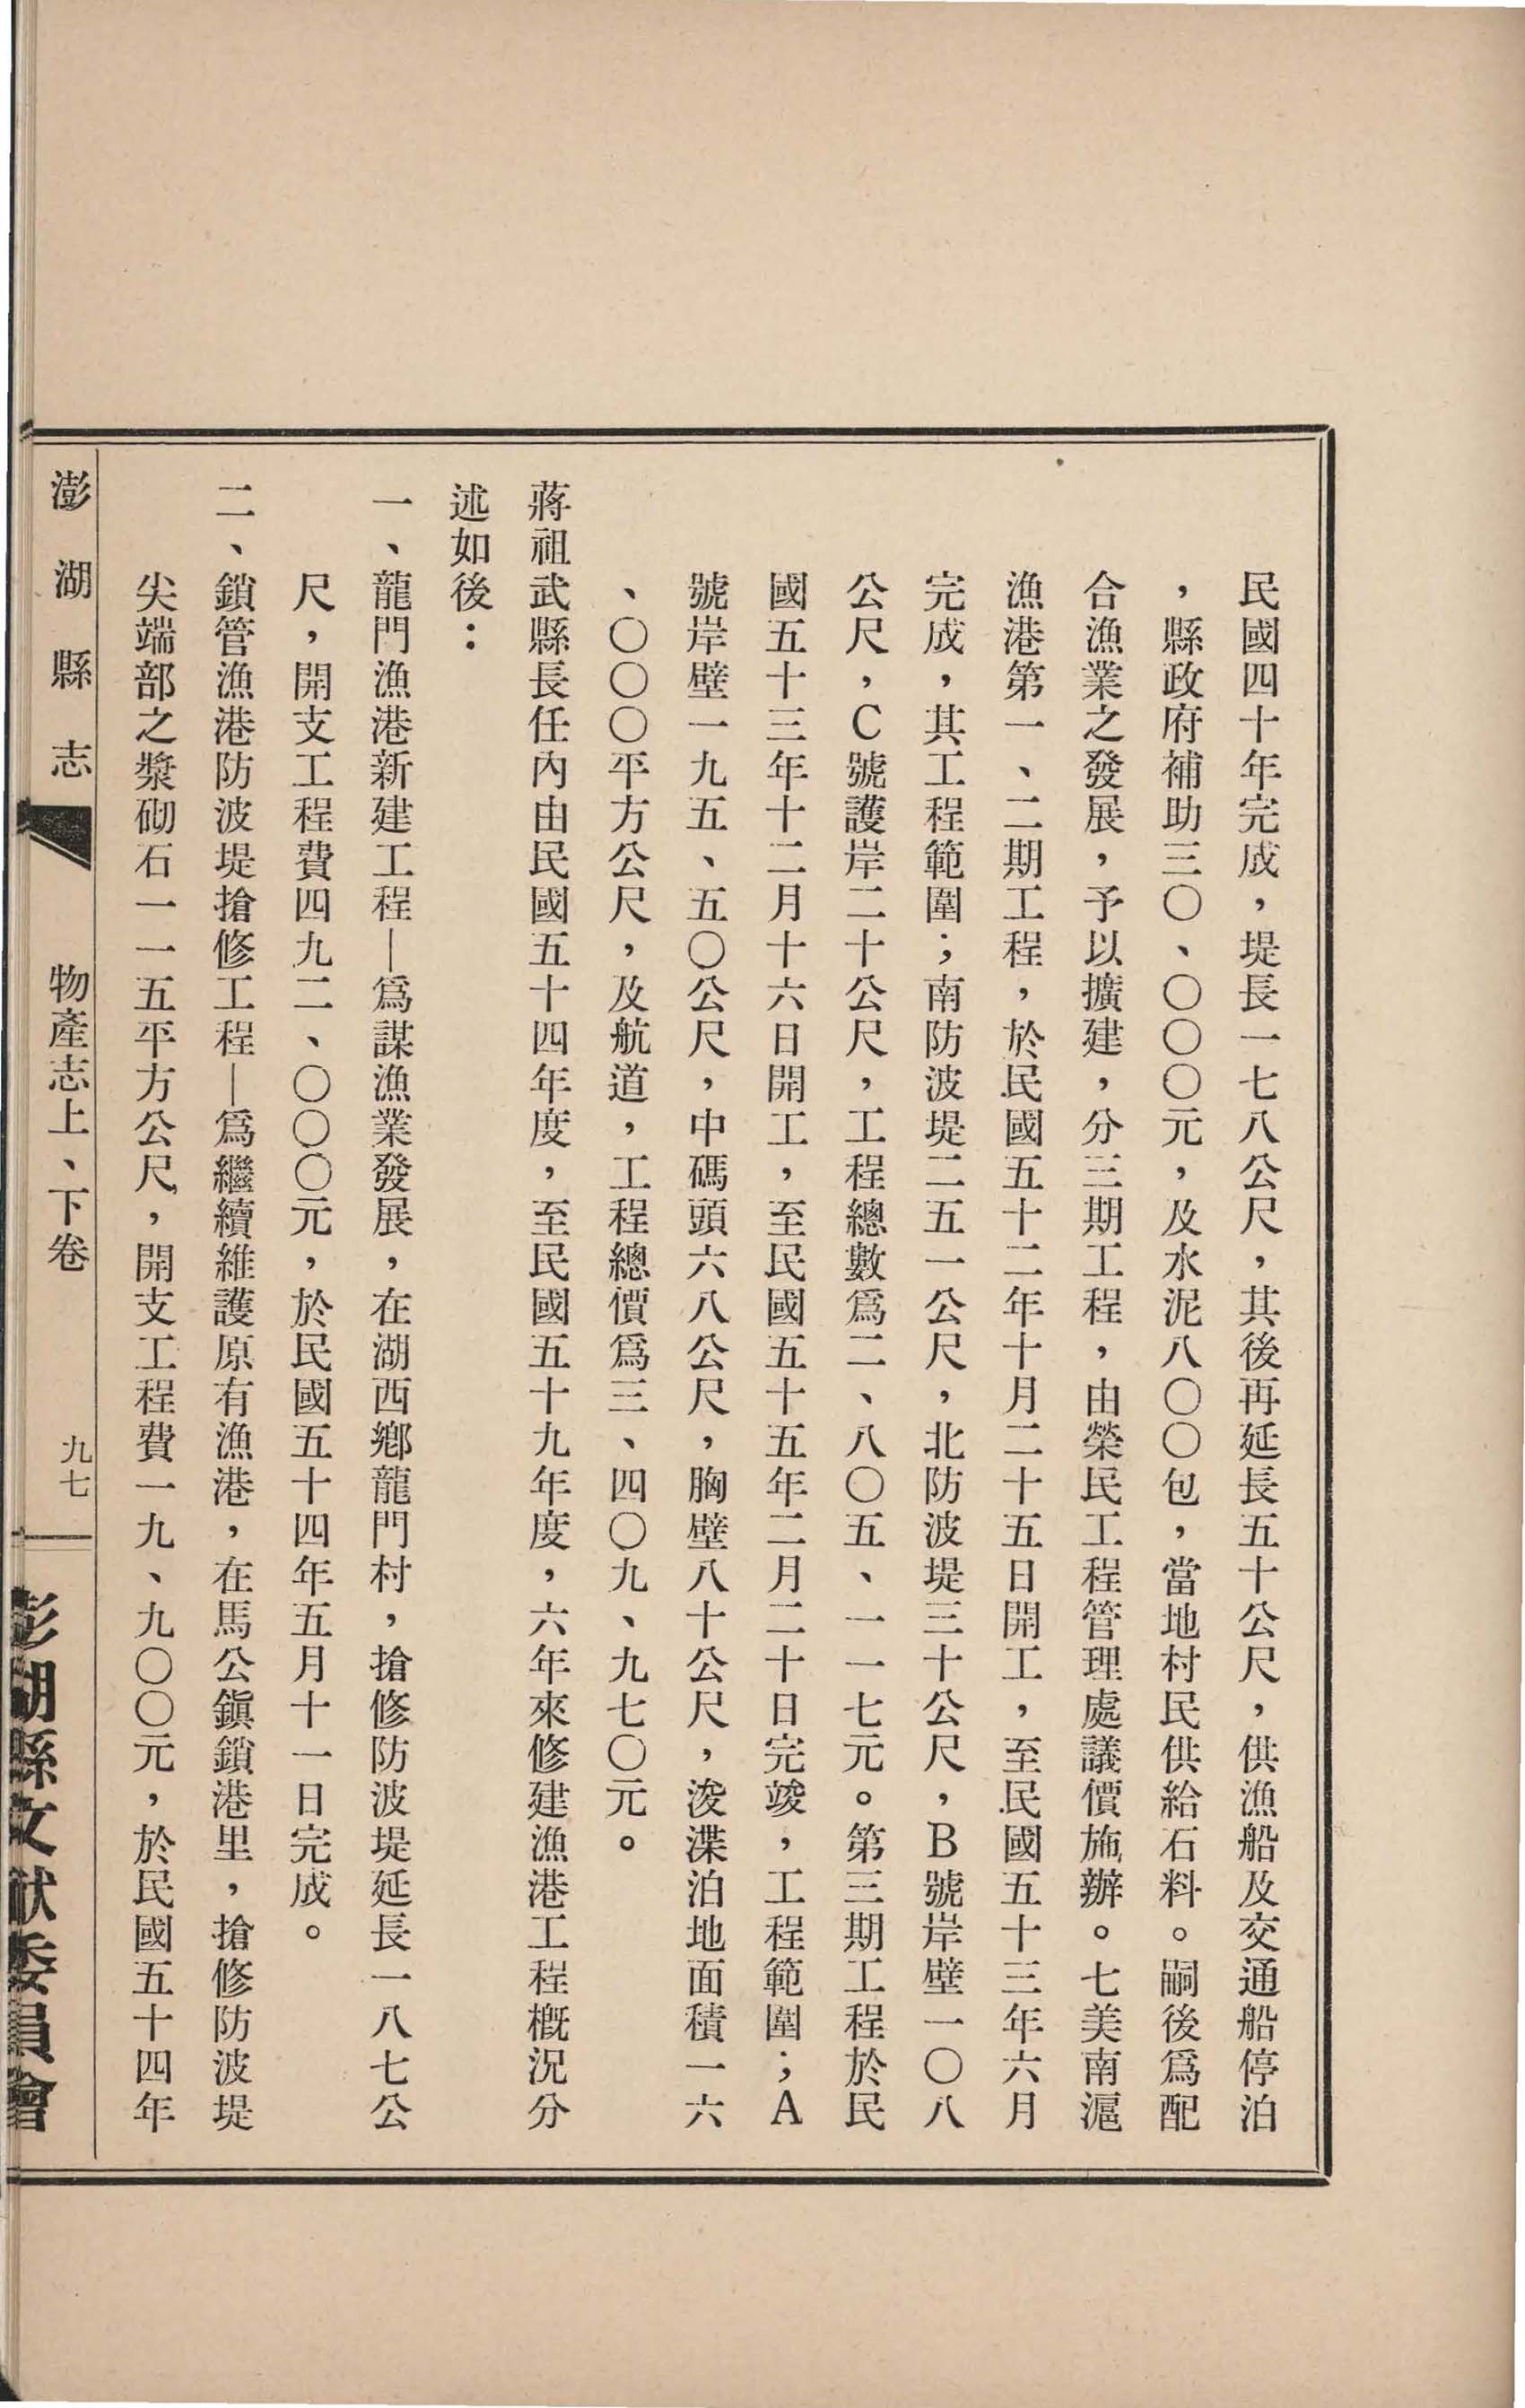 民國四十年完成，堤長一七八公尺，其後再延長五十公尺，供漁船及交通船停泊
，縣政府補助三〇、〇〇〇元，及水泥八〇〇包，當地村民供給石料。嗣後爲配
合漁業之發展，予以擴建，分三期工程，由榮民工程管理處議價施辦。七美南滬
漁港第一、二期工程，於民國五十二年十月二十五日開工，至民國五十三年六月
完成，其工程範圍；南防波堤二五一公尺，北防波堤三十公尺，B號岸壁一〇八
公尺，C號護岸二十公尺，工程總數爲二、八〇五、一一七元。第三期工程於民
國五十三年十二月十六日開工，至民國五十五年二月二十日完竣，工程範圍；A
號岸壁一九五、五〇公尺，中碼頭六八公尺，胸壁八十公尺，浚渫泊地面積一六
、〇〇〇平方公尺，及航道，工程總價爲三、四〇九、九七〇元。
蔣祖武縣長任內由民國五十四年度，至民國五十九年度，六年來修建漁港工程概況分
述如後：
一、龍門漁港新建工程—爲謀漁業發展，在湖西鄉龍門村，搶修防波堤延長一八七公
尺，開支工程費四九二、〇〇〇元，於民國五十四年五月十一日完成。
二、鎖管漁港防波堤搶修工程—爲繼續維護原有漁港，在馬公鎭鎖港里，搶修防波堤
尖端部之漿砌石一一五平方公尺，開支工程費一九、九〇〇元，於民國五十四年
澎湖縣志 物產志上、下卷 九七
澎湖縣文献委員會